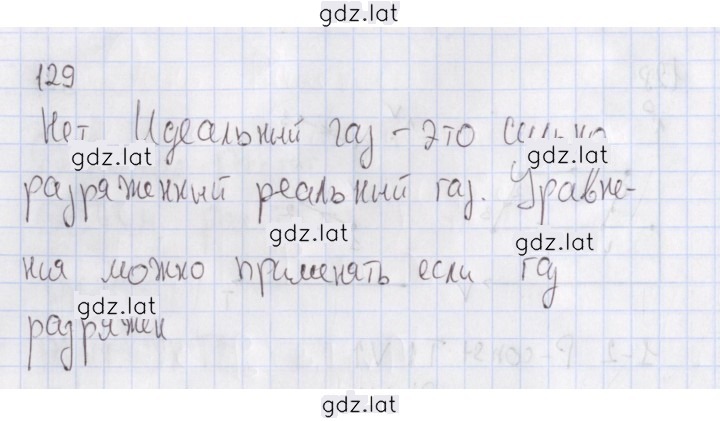 gdz.lat
129
Нет Идеальный газ - это сильно
gdz.lat
gdz.lat
разряженный реальный газ. Уравне-
gdz.lat
gdz.lat
ния можно применять если газ
gdz.lat
разряжен
gdz.lat